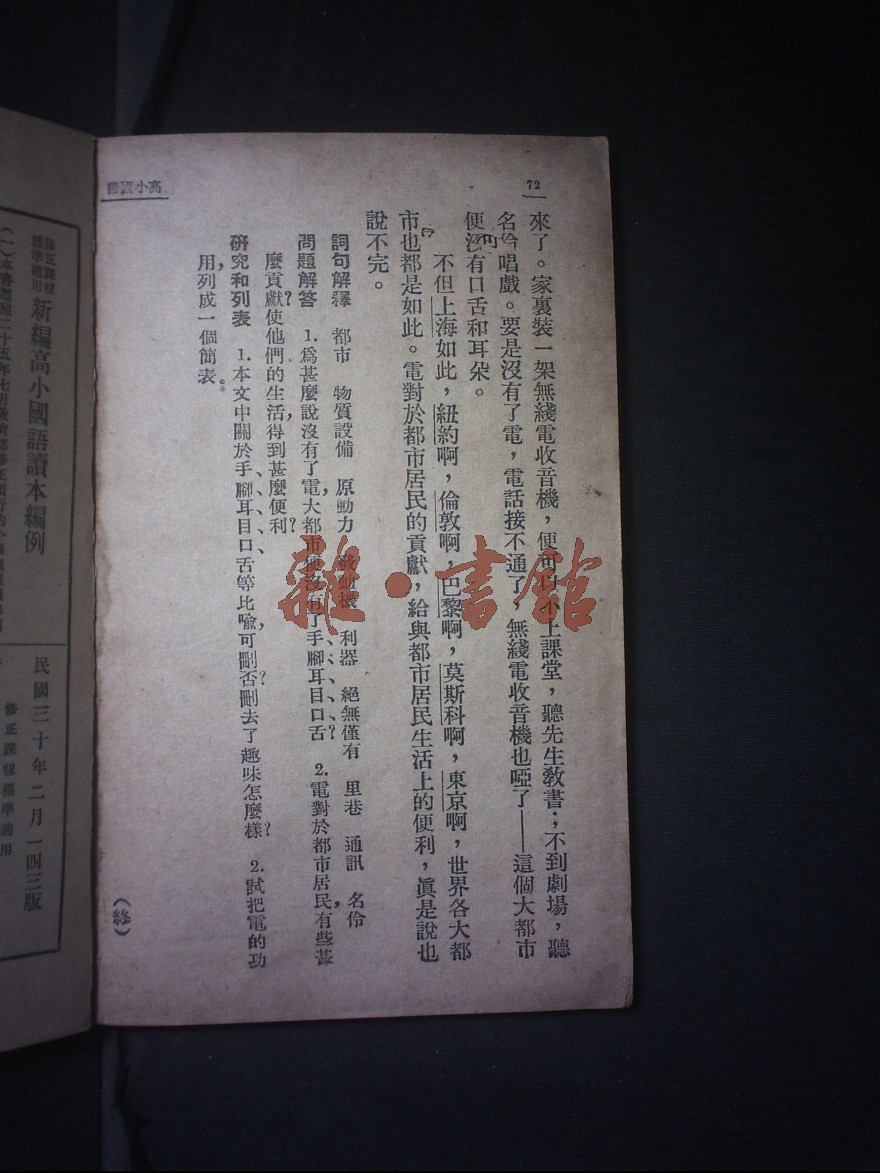 72
高小國語
來了。家裏裝一架無綫電收音機，便可以不上課堂，聽先生教書；不到劇場，聽
名伶唱戲。要是沒有了電，電話接不通了，無綫電收音機也啞了——這個大都市
便沒有口舌和耳朵。
不但上海如此，紐約啊，倫敦啊，巴黎啊，莫斯科啊，東京啊，世界各大都
市也都是如此。電對於都市居民的貢獻，給與都市居民生活上的便利，眞是說也
說不完。
詞句解釋　都市　物質設備　原動力　發動機　利器　絕無僅有　里巷　通訊　名伶
問題解答　1.爲甚麼說沒有了電，大都市便沒有了手、腳、耳、目、口、舌？　2.電對於都市居民，有些甚
麼貢獻？使他們的生活，得到甚麼便利？
研究和列表　1.本文中關於手、腳、耳、目、口、舌等比喩，可刪否？刪去了趣味怎麼樣？　2.試把電的功
用，列成一個簡表。
（終）
雜·書館
修正課程
標準適用
新編高小國語讀本編例
民國三十年二月一四三版
修正課程標準適用